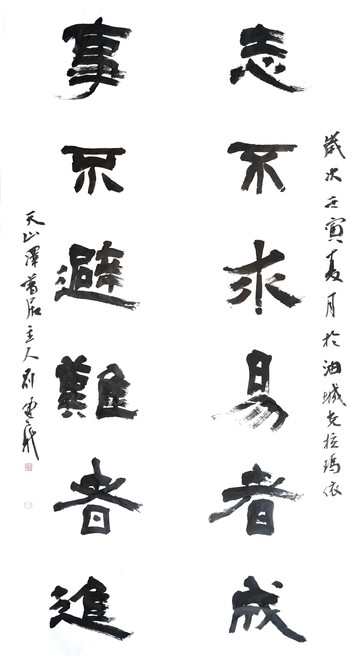 歲次壬寅夏月於油城克拉瑪依
志不求易者成
事不避難者進
天山澤居主人